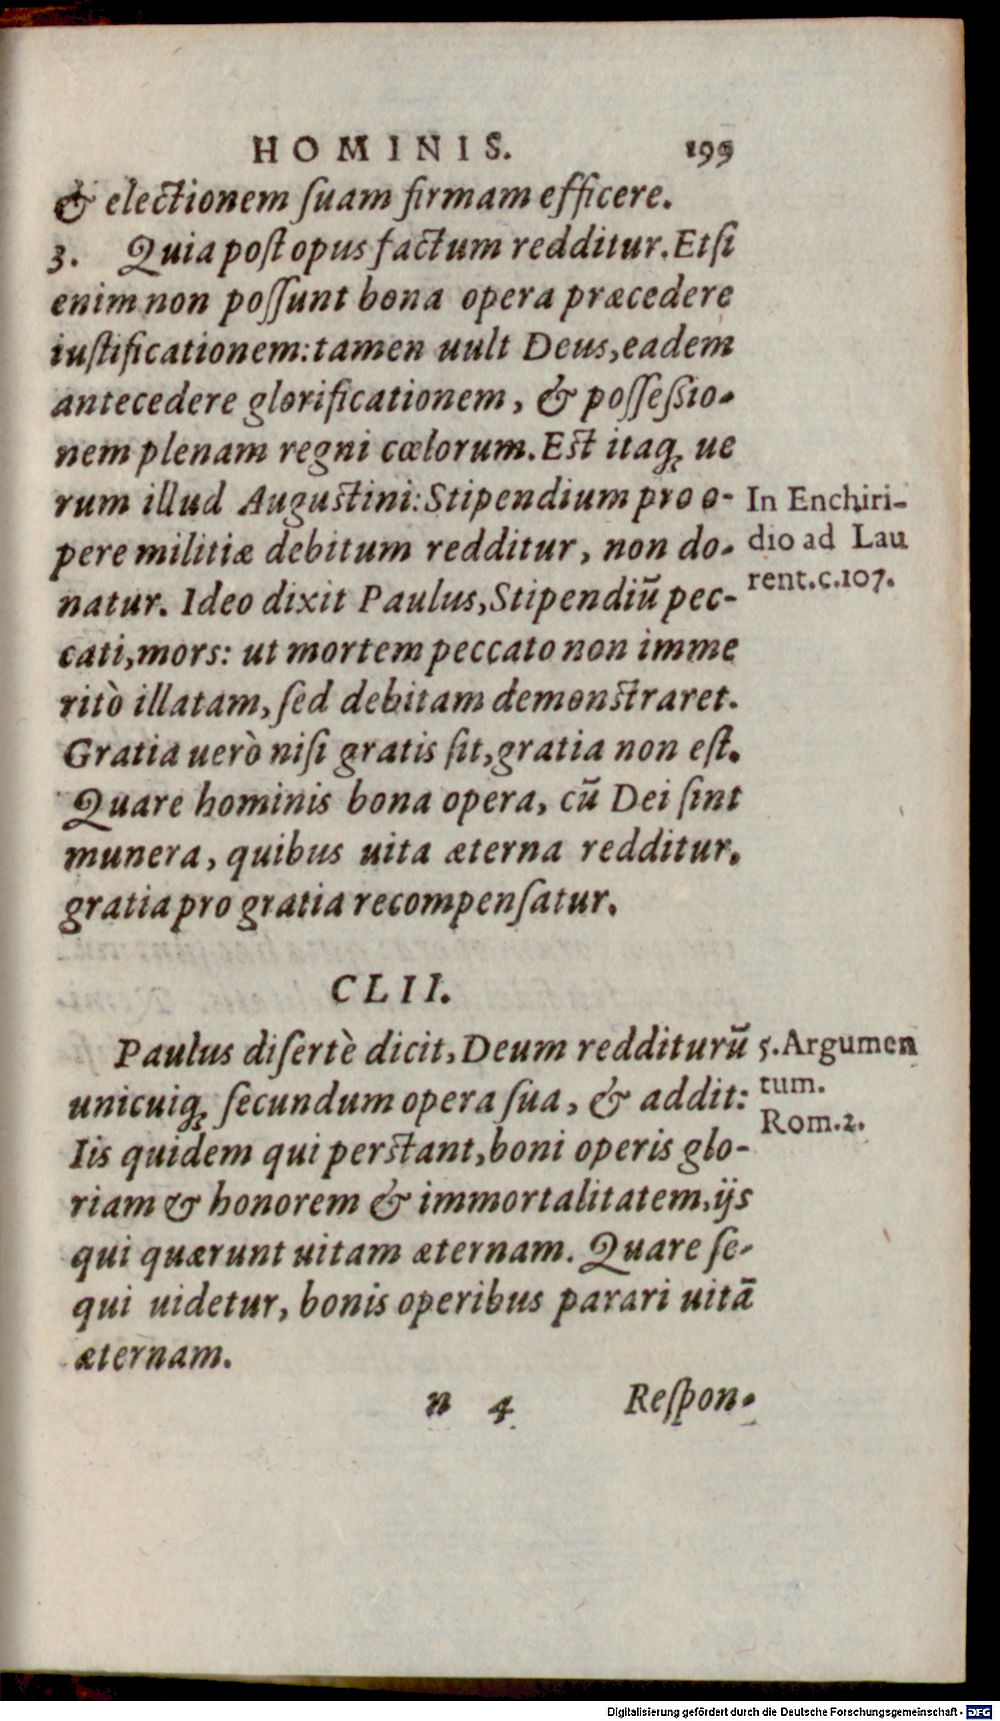 HOMINIS. 199
& electionem ſuam firmam efficere.
3. Quia poſt opus factum redditur. Etſi
enim non poſſunt bona opera præcedere
iuſtificationem: tamen uult Deus, eadem
antecedere glorificationem, & poſſeßio-
nem plenam regni cœlorum. Eſt itaq; ue
rum illud Auguſtini: Stipendium pro o-
pere militiæ debitum redditur, non do-
natur. Ideo dixit Paulus, Stipendiū pec-
cati, mors: ut mortem peccato non imme
ritò illatam, ſed debitam demonſtraret.
Gratia uerò niſi gratis ſit, gratia non eſt.
Quare hominis bona opera, cū Dei ſint
munera, quibus uita æterna redditur,
gratia pro gratia recompenſatur.
In Enchiri-
dio ad Lau
rent.c.107.
CLII.
Paulus diſertè dicit, Deum redditurū
unicuiq; ſecundum opera ſua, & addit:
Iis quidem qui perſtant, boni operis glo-
riam & honorem & immortalitatem, ijs
qui quærunt uitam æternam. Quare ſe-
qui uidetur, bonis operibus parari uitā
æternam.
5. Argumen
tum.
Rom.2.
n 4 Reſpon-
Digitalisierung gefördert durch die Deutsche Forschungsgemeinschaft - DFG